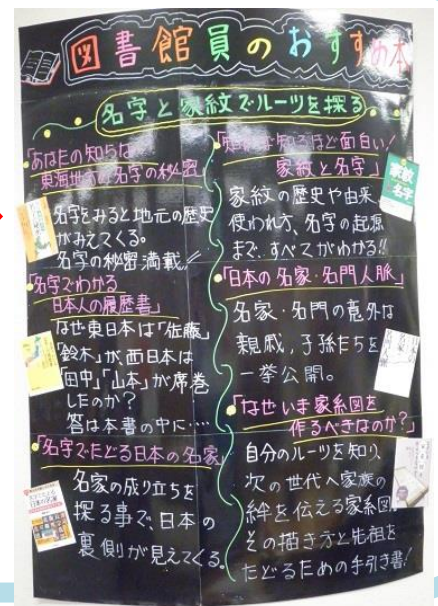 図書館員のおすすめ本
名字と家紋でルーツを探る
「あなたの知らない
東海地方の名字の秘密」
名字をみると地元の歴史
がみえてくる。
名字の秘密満載!!
「名字でわかる
日本人の履歴書」
なぜ東日本は「佐藤」
「鈴木」が、西日本は
「田中」「山本」が席巻
したのか?
答は本書の中に…
「名字でたどる日本の名家」
名家の成り立ちを
探る事で、日本の
裏側が見えてくる。
「知れば知るほど面白い!
家紋と名字」
家紋の歴史や由来、
使われ方、名字の起源
まで、すべてがわかる!!
家紋
名字
「日本の名家・名門人脈」
名家・名門の意外な
親戚,子孫たちを
一挙公開。
「なぜいま家系図を
作るべきなのか?」
自分のルーツを知り、
次の世代へ家族の
絆を伝える家系図。
その描き方と先祖を
たどるための手引き書!